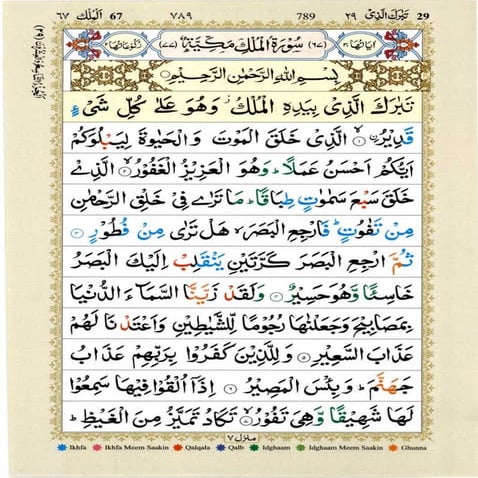 29 تَبٰرَكَ الَّذِىْ ٢٩ 789 ٧٨٩ 67 اَلْمُلْك ٦٧
اٰيَاتُهَا ٣٠ (٦٧) سُوْرَةُ الْمُلْكِ مَكِّيَّةٌ (٧٧) رُكُوْعَاتُهَا ٢
بِسْمِ اللّٰهِ الرَّحْمٰنِ الرَّحِيْمِ
تَبٰرَكَ الَّذِىْ بِيَدِهِ الْمُلْكُ ز وَهُوَ عَلٰى كُلِّ شَىْءٍ
قَدِيْرُ ۙ﴿١﴾ اۨلَّذِىْ خَلَقَ الْمَوْتَ وَالْحَيٰوةَ لِيَبْلُوَكُمْ
اَيُّكُمْ اَحْسَنُ عَمَلًا ؕ وَهُوَ الْعَزِيْزُ الْغَفُوْرُ ۙ﴿٢﴾ الَّذِىْ
خَلَقَ سَبْعَ سَمٰوٰتٍ طِبَاقًا ؕ مَا تَرٰى فِىْ خَلْقِ الرَّحْمٰنِ
مِنْ تَفٰوُتٍ ؕ فَارْجِعِ الْبَصَرَ ۙ هَلْ تَرٰى مِنْ فُطُوْرٍ ﴿٣﴾
ثُمَّ ارْجِعِ الْبَصَرَ كَرَّتَيْنِ يَنْقَلِبْ اِلَيْكَ الْبَصَرُ
خَاسِئًا وَّهُوَ حَسِيْرٌ ﴿٤﴾ وَلَقَدْ زَيَّنَّا السَّمَآءَ الدُّنْيَا
بِمَصَابِيْحَ وَجَعَلْنٰهَا رُجُوْمًا لِّلشَّيٰطِيْنِ وَاَعْتَدْنَا لَهُمْ
عَذَابَ السَّعِيْرِ ﴿٥﴾ وَلِلَّذِيْنَ كَفَرُوْا بِرَبِّهِمْ عَذَابُ
جَهَنَّمَ ؕ وَبِئْسَ الْمَصِيْرُ ﴿٦﴾ اِذَآ اُلْقُوْا فِيْهَا سَمِعُوْا
لَهَا شَهِيْقًا وَّهِىَ تَفُوْرُ ۙ﴿٧﴾ تَكَادُ تَمَيَّزُ مِنَ الْغَيْظِ ؕ
منزل ٧
Ikhfa Ikhfa Meem Saakin Qalqala Qalb Idghaam Idghaam Meem Saakin Ghunna